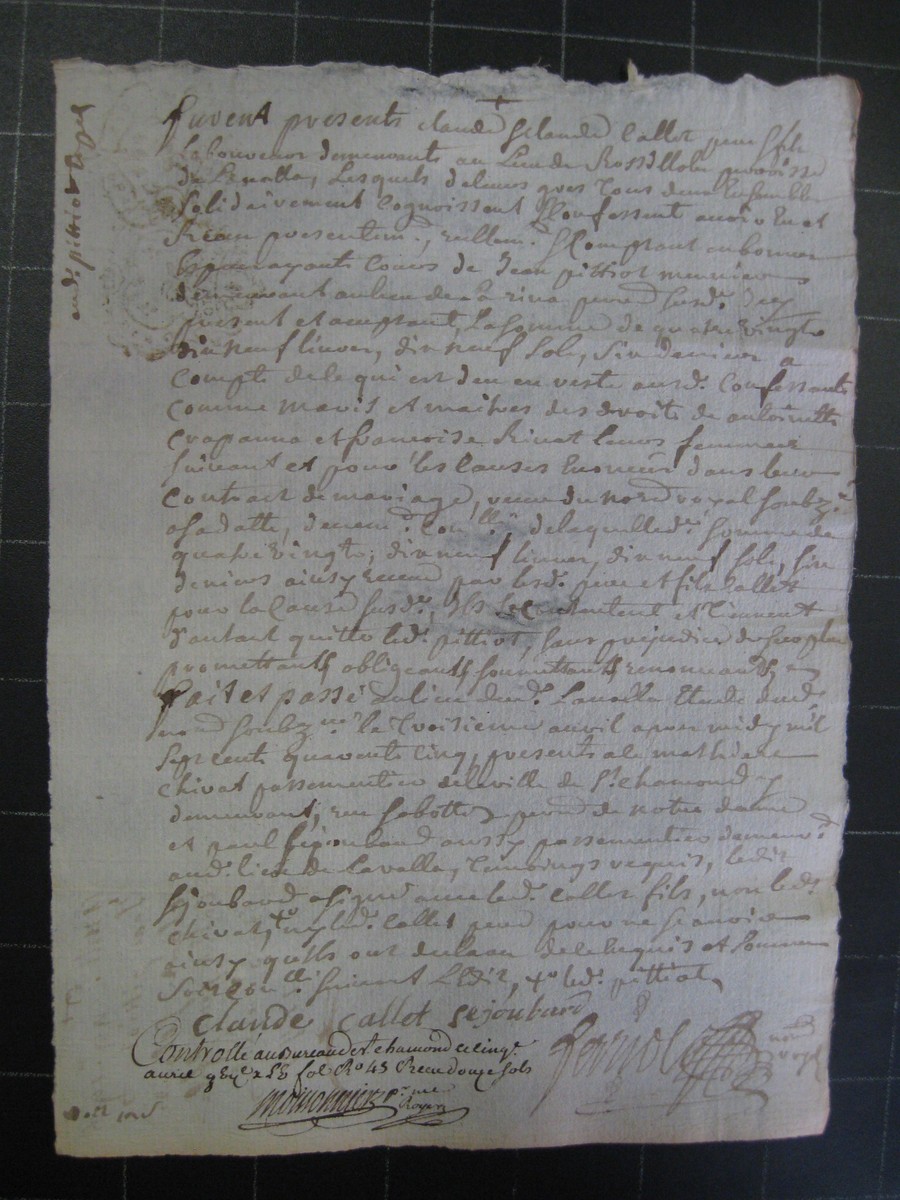 furent presents claude & claude Callet pere & fils
Laboureurs demeurants au Lieu de Rossillol parroisse
de Lavalla, Lesquels de leurs gres tous deux Ensemble
solidairement Cognoissent & Confessent avoir Eu et
Receu presentemt., reellemt. & Comptant en bonnes
Especes ayants Cours de Jean pittiot meunier
demeurant au lieu de La rina parr. susde. icy
present et acceptant, La somme de quatre vingts
dix neuf livres, dix neuf sols, six deniers a
Compte de ce qui est deu en reste ausd. Confessants
Comme maris et maitres des droits de antoinette
Crapanna et francoise Rivat leurs femmes
suivant et pour les Causes Enoncées dans leur
Contract de mariage, receu du nore royal soubzné.
a sa datte, de laquelle de. somme de
quatre vingts, dix neuf livres, dix neuf sols, six
deniers ainsy receue par lesd. pere et fils Callet
pour la Cause susde., Ils se Contentent et tiennent
d'autant quitte led. pittiot, sans prejudice de surplus
promettants obligeants soumettants renonceants &
fait et passé au lieu dud. Lavalla Etude dud.
nore soubzné. le Troisieme avril apres midy mil
sept cents quarente Cinq, presents sr mathieu
Chivat passementier de la ville de St. chamond y
demeurant, rue sabottes parr. de notre dame
et paul sejoubard aussy passementier demeurt.
aud. lieu de Lavalla, Temoings requis, ledit
sejoubard a signé avec led. Callet fils, non led.
Chivat, ny led. Callet pere pour ne scavoir
ainsy qu'ils ont declaré de ce Requis et sommés
suivant L'Edit, led. pittiot
claude callet sejoubard
Controllé au Bureau de St chamond ce cinqe.
avril fol Ro 45 Receu douze sols